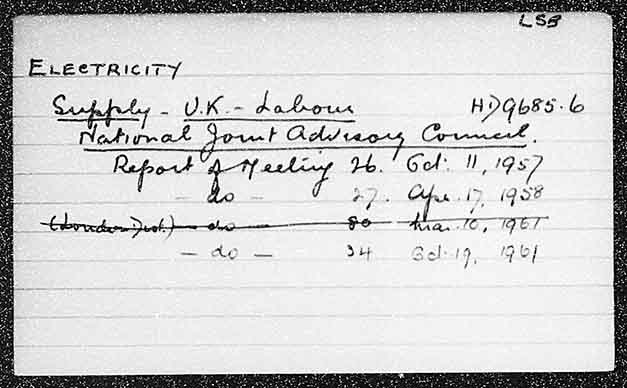 LSB
ELECTRICITY
Supply - U.K. - Labour HD9685.6
National Joint Advisory Council.
Report of Meeting 26. Oct: 11, 1957
- do - 27. Apr. 17, 1958
(London Dist.) - do - 80 Mar. 10, 1961
- do - 34 Oct. 19, 1961